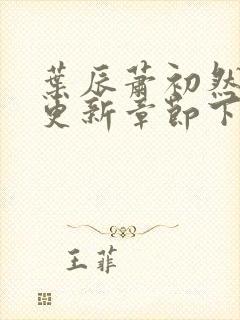 葉辰蕭初然
更新章節下
王菲